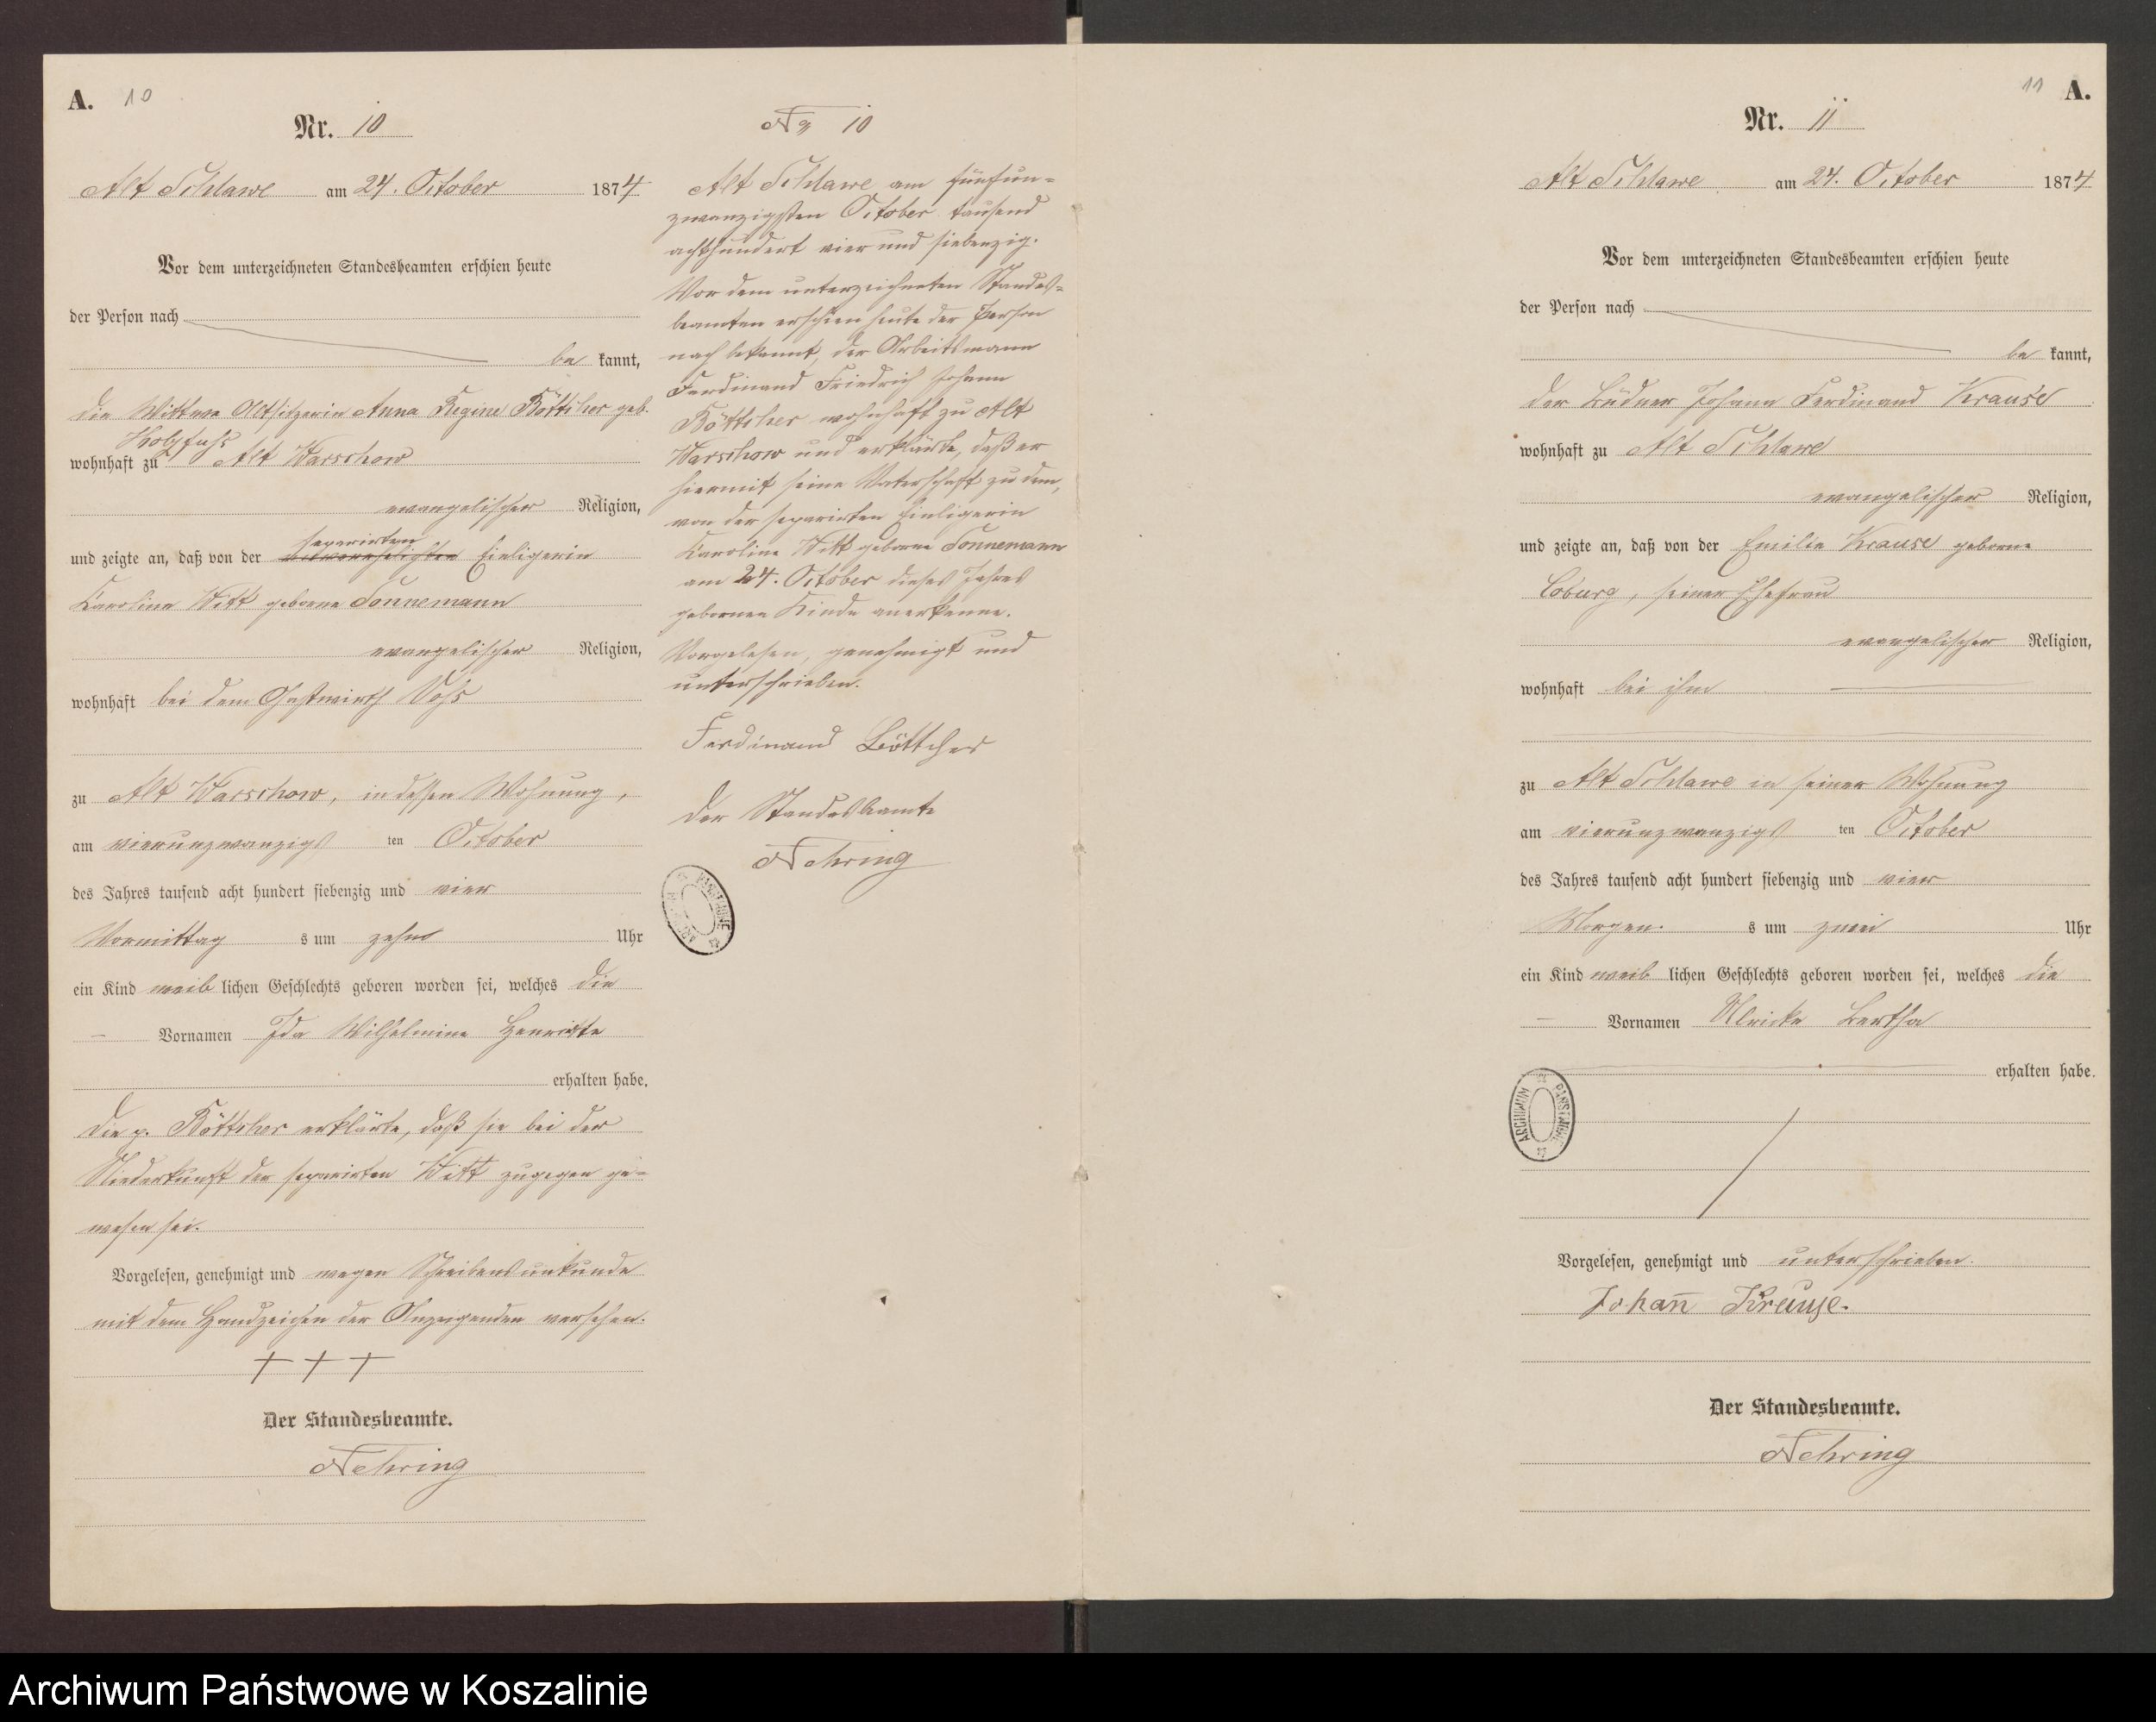 A. 10
Nr. 10
Alt Schlawe am 24. October 1874
Vor dem unterzeichneten Standesbeamten erschien heute
der Person nach
be kannt,
die Wittwe Altsitzerin Anna Regine Böttcher geb.
Holzfuss
wohnhaft zu Alt Warschow
evangelischer Religion,
separirten
und zeigte an, daß von der Einligerin
Karoline Witt geborne Sonnemann
evangelischer Religion,
wohnhaft bei dem Gastwirth Voß
zu Alt Warschow, in dessen Wohnung,
am vierunzwanzigs ten October
des Jahres tausend acht hundert siebenzig und vier
Vormittag s um zehn Uhr
ein Kind weib lichen Geschlechts geboren worden sei, welches die
— Vornamen Ida Wilhelmine Henriette
erhalten habe.
Die p. Böttcher erklärte, daß sie bei der
Niederkunft der separirten Witt zugegen ge-
wesen sei.
Vorgelesen, genehmigt und wegen Schreibensunkunde
mit dem Handzeichen der Anzeigenden versehen.
+ + +
Der Standesbeamte.
Nehring
No 10
Alt Schlawe am fünfun-
zwanzigsten October tausend
achthundert vier und siebenzig.
Vor dem unterzeichneten Standes-
beamten erschien heute der Person
nach bekannt, der Arbeitsmann
Ferdinand Friedrich Johann
Böttcher wohnhaft zu Alt
Warschow und erklärte, daß er
hiermit seine Vaterschaft zu dem,
von der separirten Einligerin
Karoline Witt geborne Sonnemann
am 24. October dieses Jahres
gebornen Kinde anerkenne.
Vorgelesen, genehmigt und
unterschrieben.
Ferdinand Böttcher
Der Standesbeamte
Nehring
ARCHIWUM PAŃSTWOWE
11 A.
Nr. 11
Alt Schlawe am 24. October 1874
Vor dem unterzeichneten Standesbeamten erschien heute
der Person nach
be kannt,
der Büdner Johann Ferdinand Krause
wohnhaft zu Alt Schlawe
evangelischer Religion,
und zeigte an, daß von der Emilie Krause geborne
Coburg, seiner Ehefrau
evangelischer Religion,
wohnhaft bei ihm
zu Alt Schlawe in seiner Wohnung
am vierunzwanzigs ten October
des Jahres tausend acht hundert siebenzig und vier
Morgen s um zwei Uhr
ein Kind weib lichen Geschlechts geboren worden sei, welches die
— Vornamen Ulricke Bertha
erhalten habe.
ARCHIWUM PAŃSTWOWE
Vorgelesen, genehmigt und unterschrieben.
Johan̄ Krause.
Der Standesbeamte.
Nehring
Archiwum Państwowe w Koszalinie